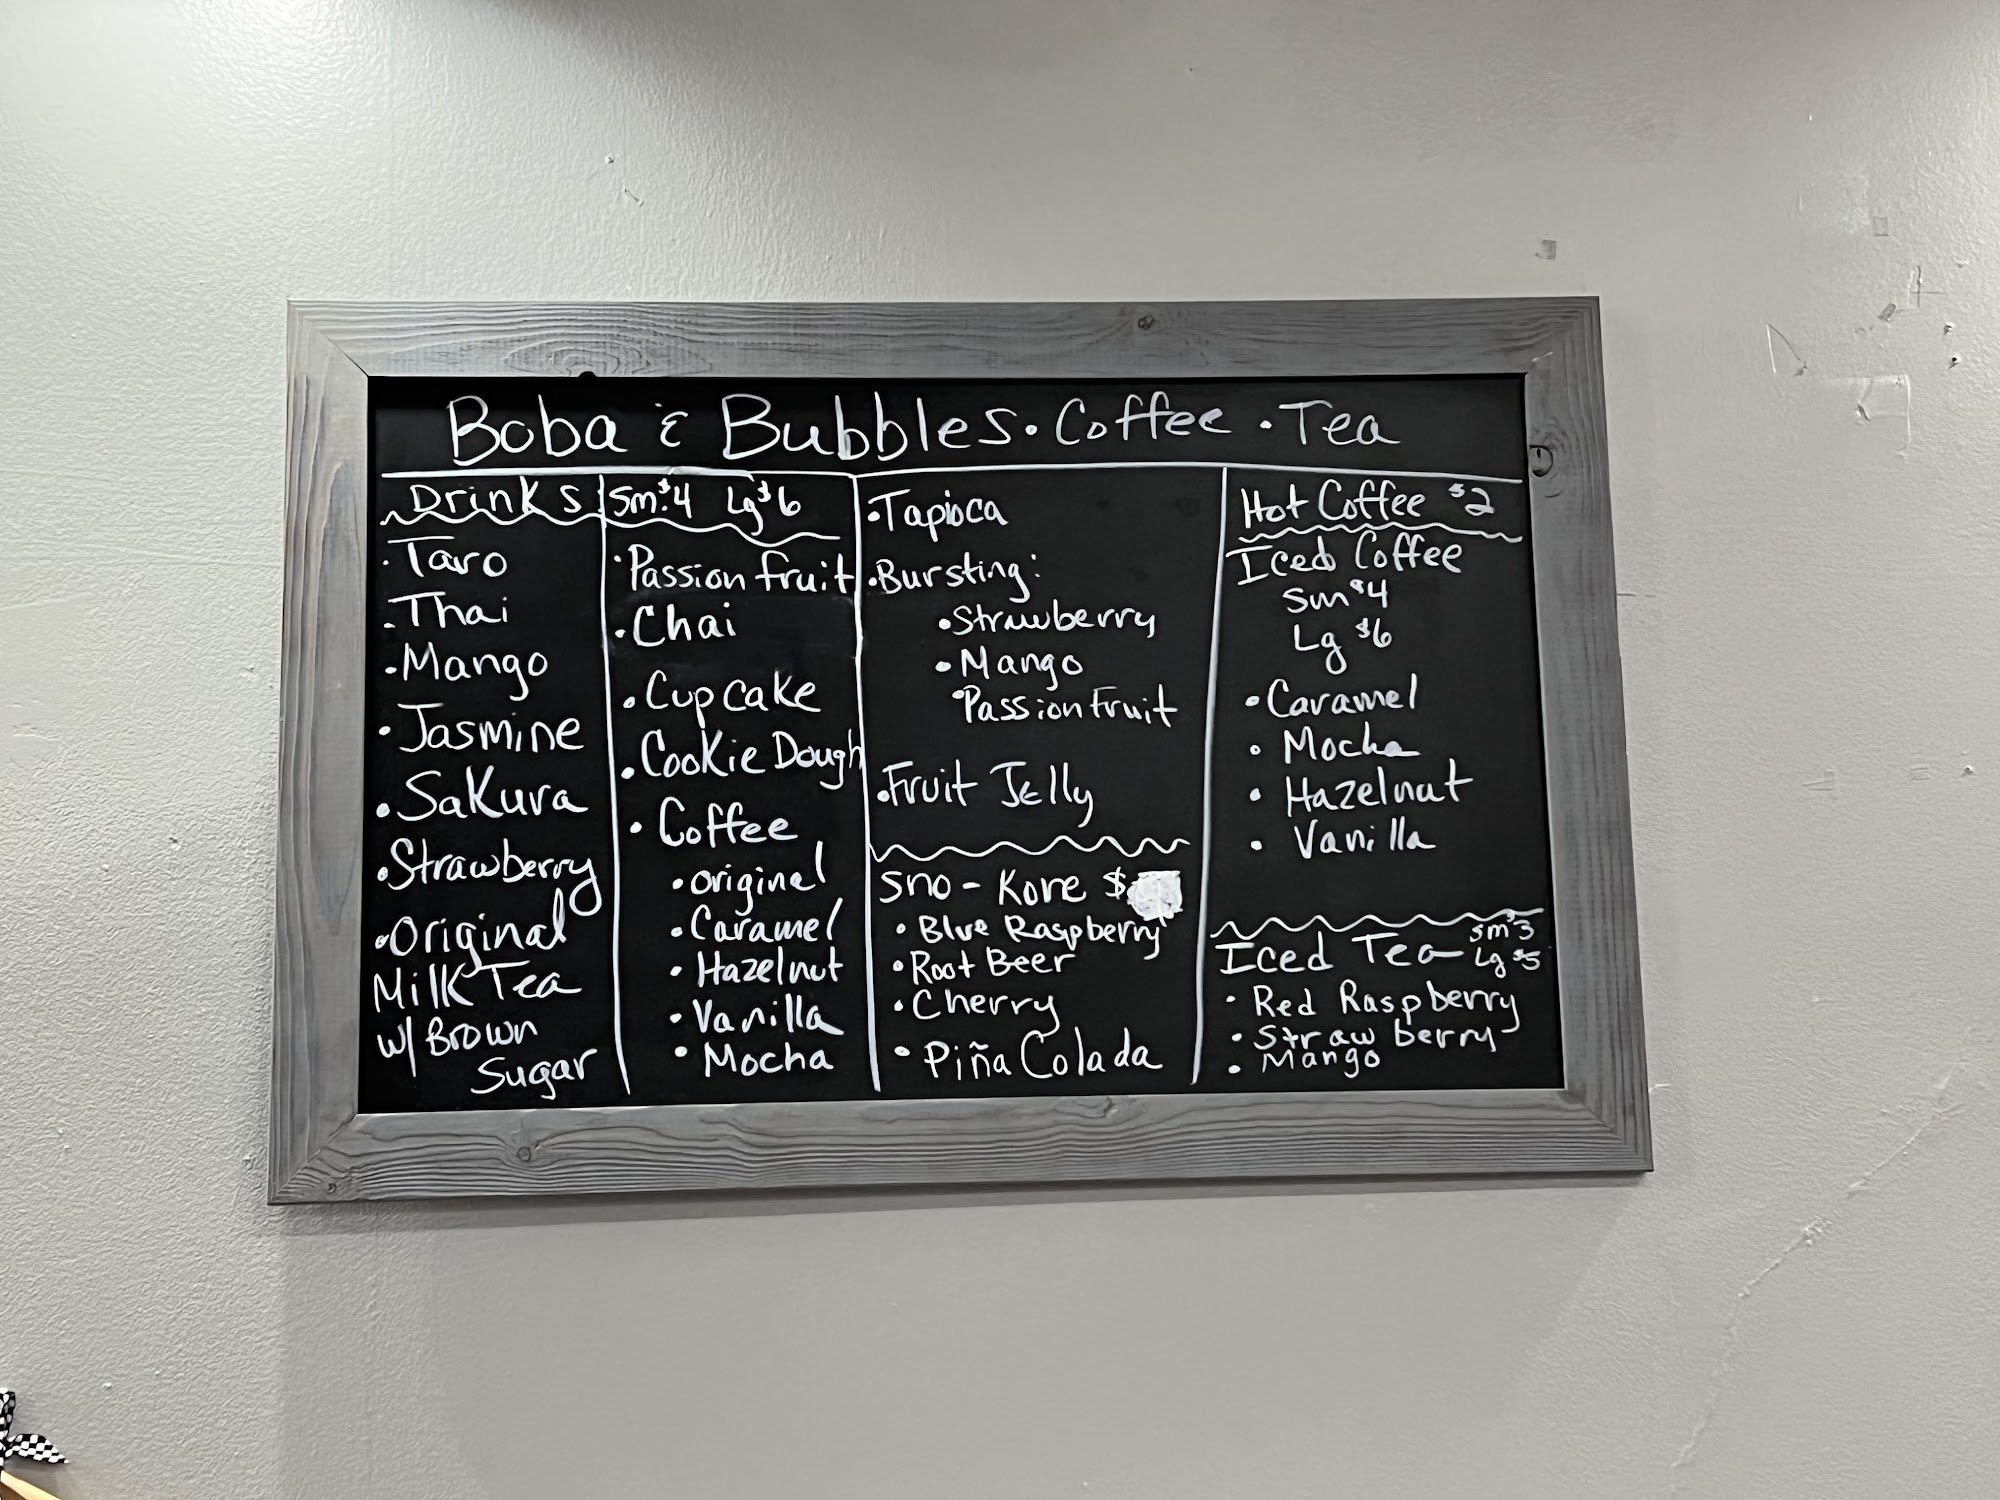 Boba & Bubbles · Coffee · Tea
Drinks: Sm. $4 Lg $6
· Taro
· Thai
· Mango
· Jasmine
· Sakura
· Strawberry
· Original
Milk Tea
w/ Brown
Sugar
· Passion fruit
· Chai
· Cupcake
· Cookie Dough
· Coffee
· original
· Caramel
· Hazelnut
· Vanilla
· Mocha
· Tapioca
· Bursting:
· Strawberry
· Mango
· Passion Fruit
· Fruit Jelly
Sno-Kone $
· Blue Raspberry
· Root Beer
· Cherry
· Piña Colada
Hot Coffee $2
Iced Coffee
Sm $4
Lg $6
· Caramel
· Mocha
· Hazelnut
· Vanilla
Iced Tea sm $3
Lg $5
· Red Raspberry
· Strawberry
· Mango